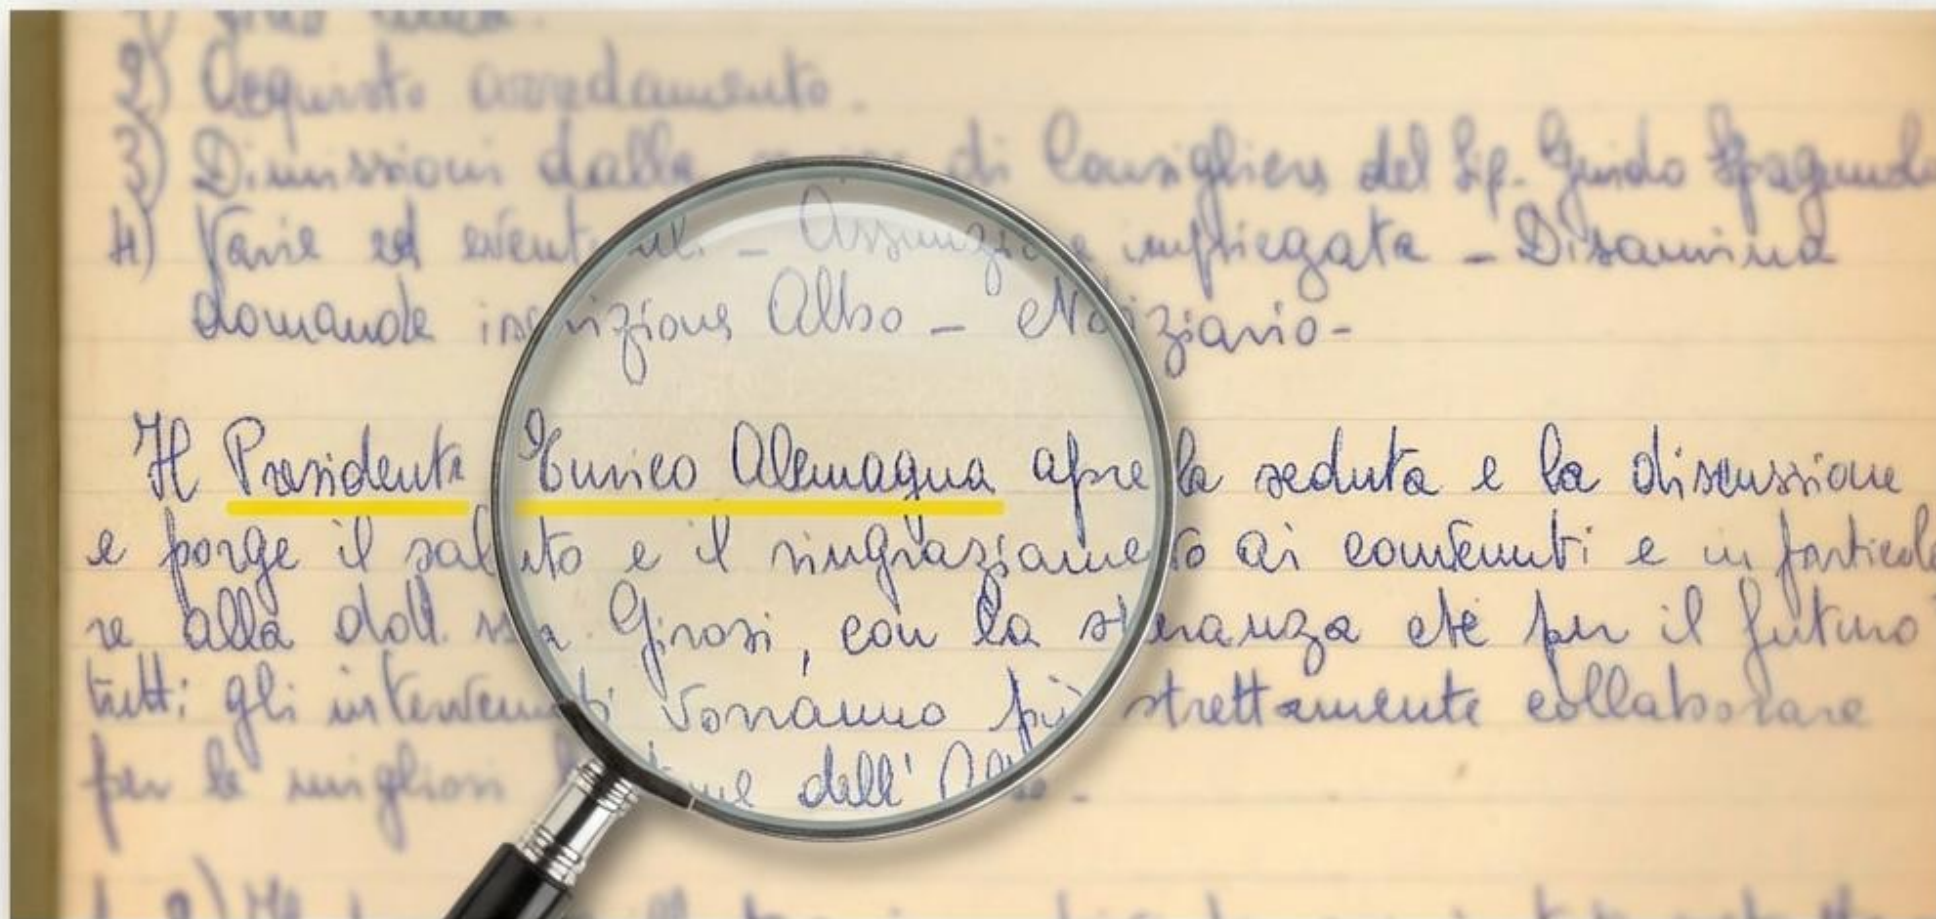 2) Acquisto arredamento.
3) Dimissioni dalla di Consigliere del Sig. Guido
4) Varie ed eventuali - Assunzione impiegata - Disamina
domande iscrizione Albo - Notiziario-
Il Presidente Enrico Alemagna apre la seduta e la discussione
e porge il saluto e il ringraziamento ai convenuti e in particola
re alla dott. ssa Girosi, con la speranza che per il futuro
tutti gli intervenuti vorranno più strettamente collaborare
per la migliori dell' Albo-